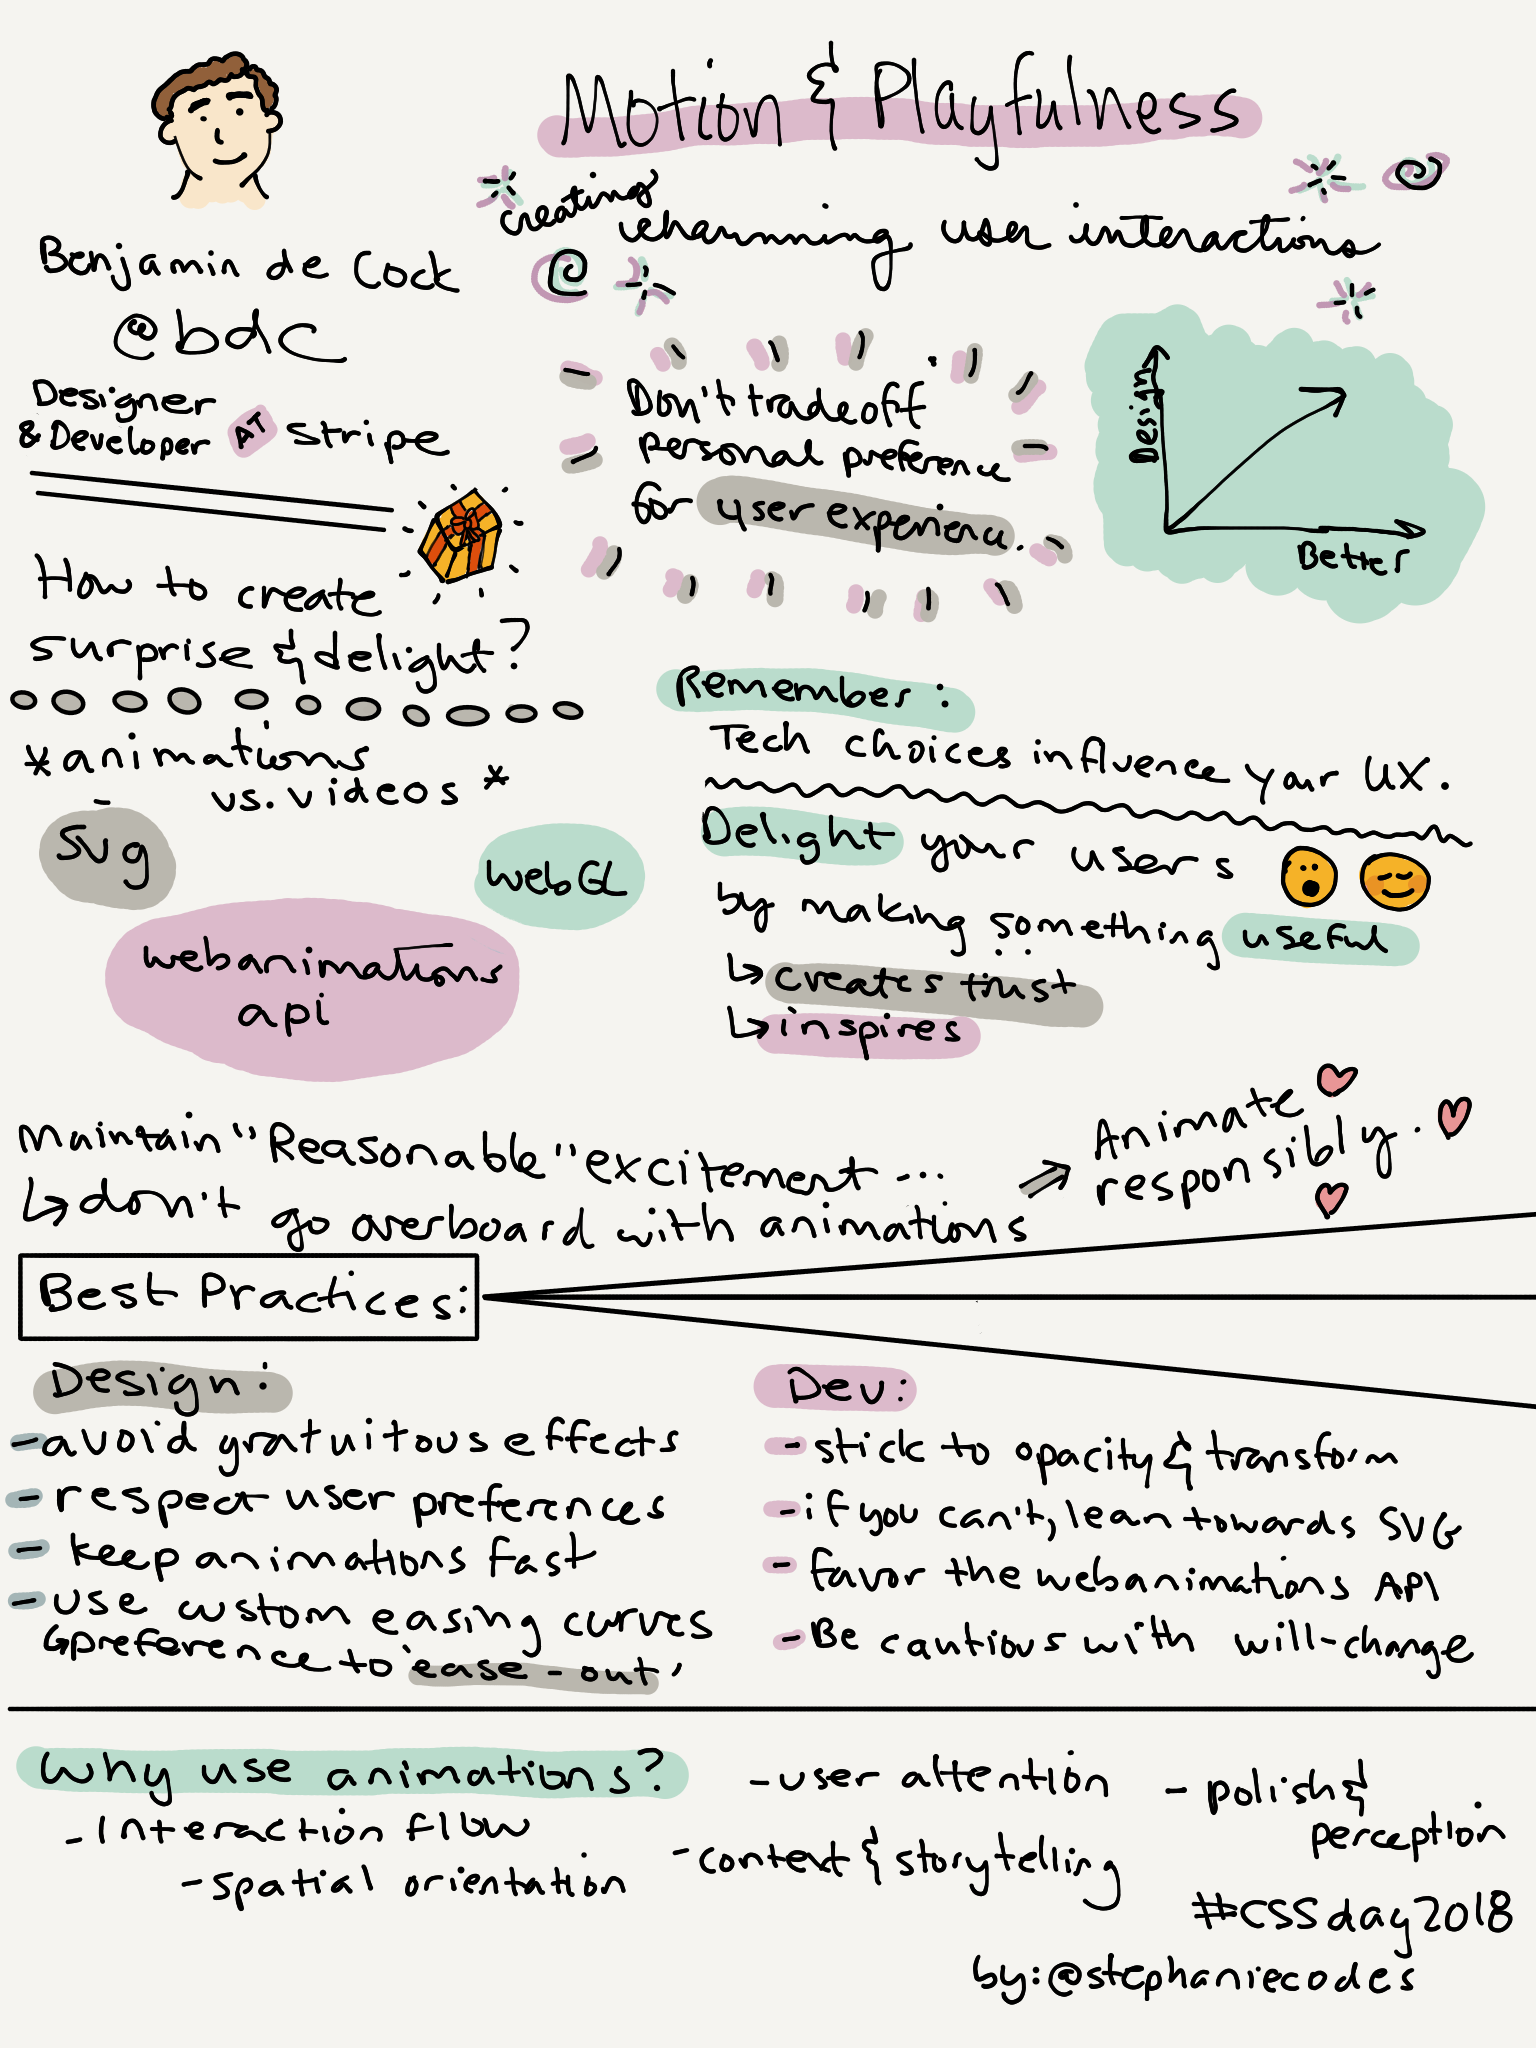 Motion & Playfulness
creating charming user interactions
Benjamin de Cock
@bdc
Designer
& Developer AT Stripe
How to create
surprise & delight?
*animations
vs. videos *
Svg
WebGL
webanimations
api
Don't tradeoff
personal preference
for user experience.
Design
Better
Remember:
Tech choices influence your UX.
Delight your users
by making something useful
↳ creates trust
↳ inspires
Maintain "Reasonable" excitement ...
↳ don't go overboard with animations
⇒ Animate
responsibly.
Best Practices:
Design:
- avoid gratuitous effects
- respect user preferences
- keep animations fast
- use custom easing curves
↳ preference to 'ease-out'
Dev:
- stick to opacity & transform
- if you can't, lean towards SVG
- favor the webanimations API
- Be cautious with will-change
Why use animations?
- Interaction flow
- spatial orientation
- user attention
- context & storytelling
- polish &
perception
#CSSday2018
by: @stephaniecodes